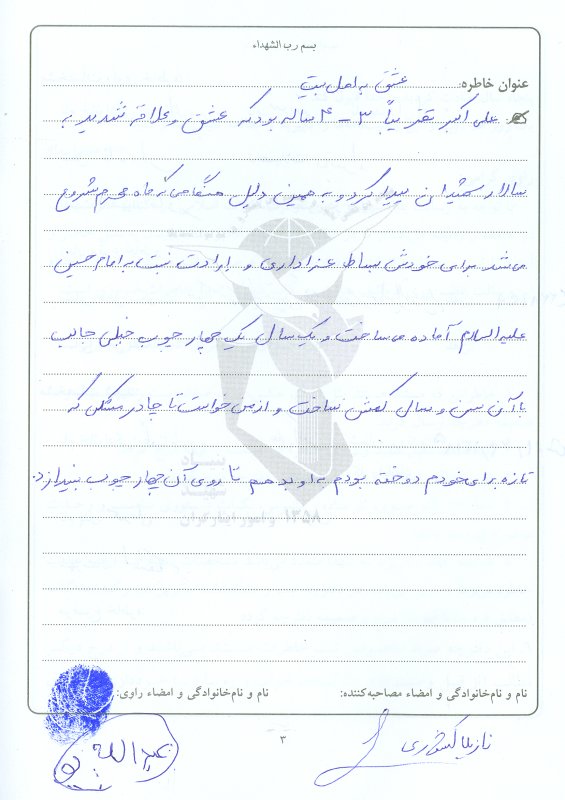 بسم رب الشهداء
عنوان خاطره: عشق به اهل بیت
علی اکبر تقریباً ۳-۴ ساله بود که عشق و علاقه شدیدی به
سالار شهیدان پیدا کرد و به همین دلیل هنگامی که ماه محرم شروع
می شد برای خودش بساط عزاداری و ارادت نسبت به امام حسین
علیه السلام آماده می ساخت و یک سال یک چهار چوب خیلی جالب
با آن سن و سال کمش ساخت و از من خواست تا چادر مشکی که
تازه برای خودم دوخته بودم به او بدهم تا روی آن چهار چوب بیندازد.
بنیاد
شهید
و امور ایثارگران
۱۳۵۸
نام و نام‌خانوادگی و امضاء مصاحبه‌کننده:
نام و نام‌خانوادگی و امضاء راوی:
۳
عبدالله